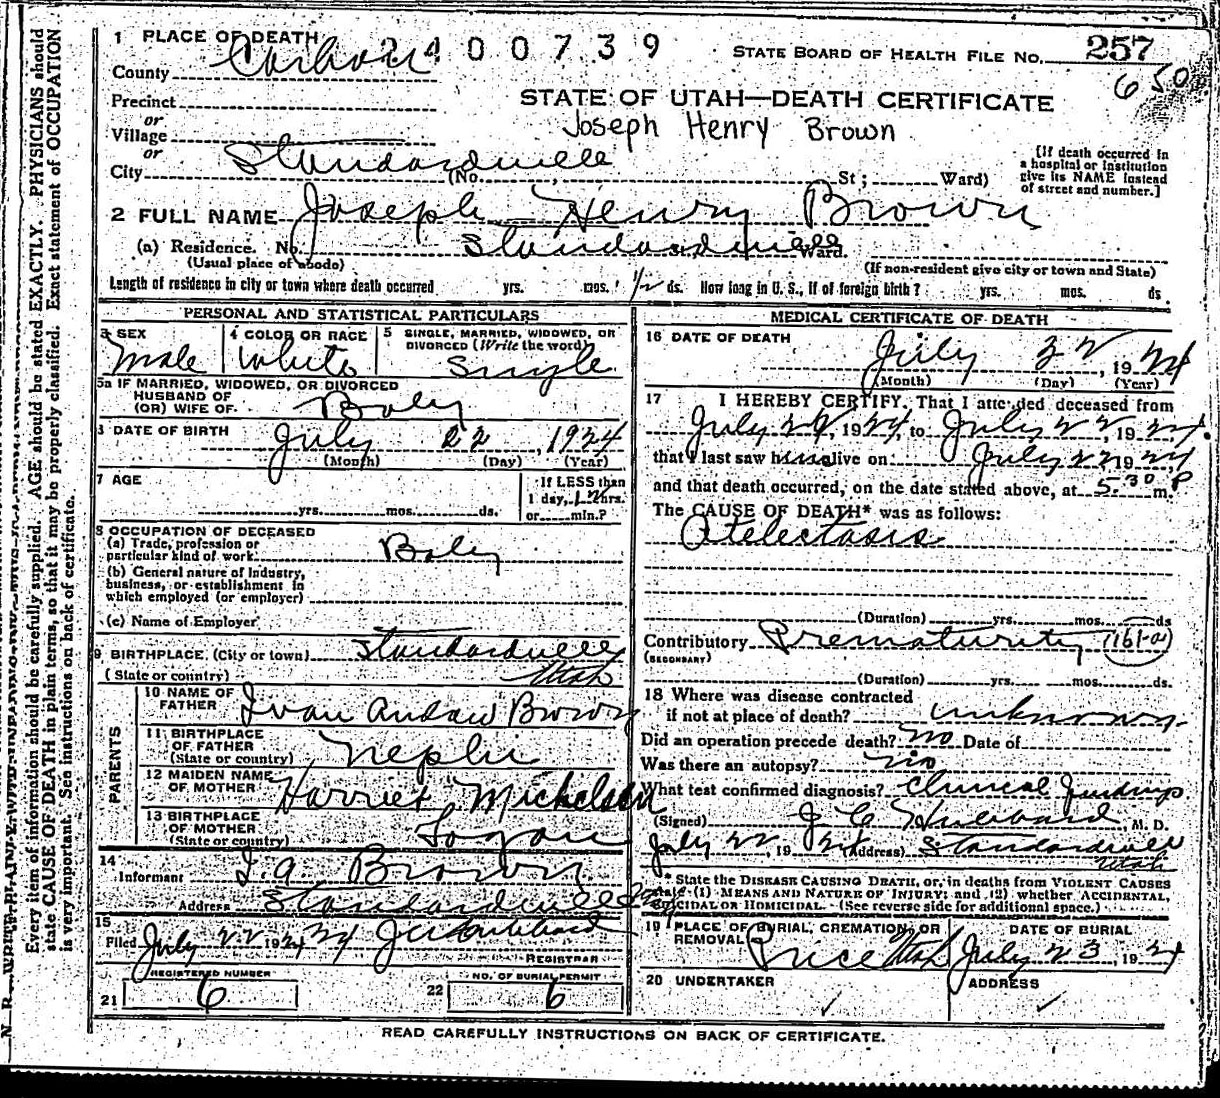 1 PLACE OF DEATH
2400739
STATE BOARD OF HEALTH FILE No. 257
County Carbon
650
Precinct
or
STATE OF UTAH—DEATH CERTIFICATE
Village
Joseph Henry Brown
or
City Standardville (No. St; Ward)
[If death occurred in
a hospital or institution
give its NAME instead
of street and number.]
2 FULL NAME Joseph Henry Brown
(a) Residence. No. Standardville St. Ward.
(Usual place of abode)
(If non-resident give city or town and State)
Length of residence in city or town where death occurred yrs. mos. 1/2 ds. How long in U. S., if of foreign birth? yrs. mos. ds.
PERSONAL AND STATISTICAL PARTICULARS
3 SEX
Male
4 COLOR OR RACE
White
5 SINGLE, MARRIED, WIDOWED, OR
DIVORCED (Write the word)
Single
5a IF MARRIED, WIDOWED, OR DIVORCED
HUSBAND OF
(OR) WIFE OF Baby
DATE OF BIRTH July 22, 1924
(Month) (Day) (Year)
7 AGE
yrs. mos. ds.
If LESS than
1 day, 12 hrs.
or min.?
8 OCCUPATION OF DECEASED
(a) Trade, profession or
particular kind of work Baby
(b) General nature of Industry,
business, or establishment in
which employed (or employer)
(c) Name of Employer
9 BIRTHPLACE (City or town) Standardville
(State or country) Utah
PARENTS
10 NAME OF
FATHER Ivan Andrew Brown
11 BIRTHPLACE
OF FATHER
(State or country) Nephi
12 MAIDEN NAME
OF MOTHER Harriet Mickelsen
13 BIRTHPLACE
OF MOTHER
(State or country) Logan
14
Informant I.A. Brown
Address Standardville
15
Filed July 22 1924
REGISTRAR
REGISTERED NUMBER
21 6
NO. OF BURIAL PERMIT
22 6
MEDICAL CERTIFICATE OF DEATH
16 DATE OF DEATH
July 22, 1924
(Month) (Day) (Year)
17 I HEREBY CERTIFY, That I attended deceased from
July 1924, to July 22, 1924.
that I last saw him alive on July 22 1924
and that death occurred, on the date stated above, at 5.30 m. P
The CAUSE OF DEATH* was as follows:
Atelectasis
(Duration) yrs. mos. ds
Contributory Prematurity (161-a)
(SECONDARY)
(Duration) yrs. mos. ds.
18 Where was disease contracted
if not at place of death? unknown
Did an operation precede death? no Date of
Was there an autopsy? no
What test confirmed diagnosis? Clinical findings
(Signed) J C Hubbard M. D.
July 22, 1924 (Address) Standardville
Utah
* State the DISEASE CAUSING DEATH, or, in deaths from VIOLENT CAUSES
state (1) MEANS AND NATURE OF INJURY; and (2) whether ACCIDENTAL,
SUICIDAL OR HOMICIDAL. (See reverse side for additional space.)
19 PLACE OF BURIAL, CREMATION, OR
REMOVAL Price Utah
DATE OF BURIAL
July 23, 1924
20 UNDERTAKER
ADDRESS
READ CAREFULLY INSTRUCTIONS ON BACK OF CERTIFICATE.
Every item of information should be carefully supplied. AGE should be stated EXACTLY. PHYSICIANS should
state CAUSE OF DEATH in plain terms, so that it may be properly classified. Exact statement of OCCUPATION
is very important. See instructions on back of certificate.